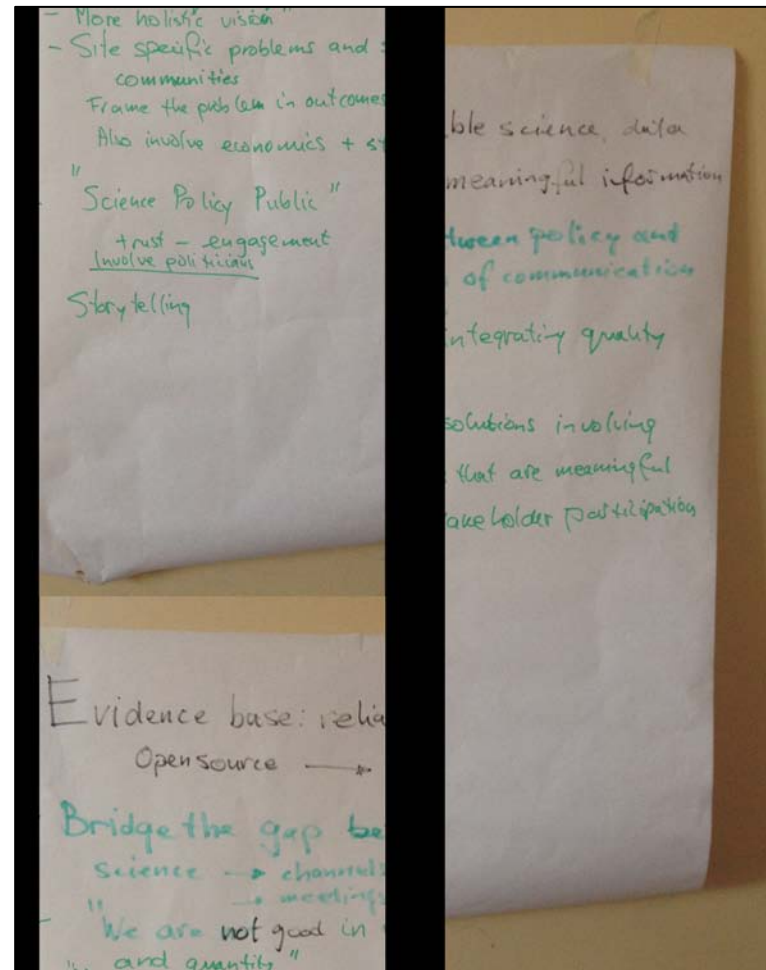 - More holistic vision"
- Site specific problems and
communities
Frame the problem in outcomes
Also involve economics + st
"
Science Policy Public"
trust - engagement
Involve politicians
Storytelling
Evidence base: relia
Opensource →
Bridge the gap be
science → channels
→ meetings
"We are not good in
and quantity"
ble science, data
meaningful information
tween policy and
of communication
integrating quality
solutions involving
that are meaningful
akeholder participation